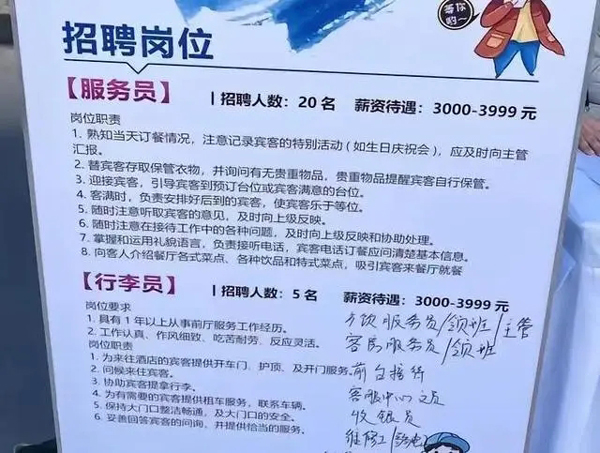 等你哟~
招聘岗位
【服务员】 | 招聘人数：20 名 薪资待遇：3000-3999 元
岗位职责
1. 熟知当天订餐情况，注意记录宾客的特别活动（如生日庆祝会），应及时向主管
汇报。
2. 替宾客存取保管衣物，并询问有无贵重物品，贵重物品提醒宾客自行保管。
3. 迎接宾客，引导宾客到预订台位或宾客满意的台位。
4. 客满时，负责安排好后到的宾客，使宾客乐于等位。
5. 随时注意听取宾客的意见，及时向上级反映。
6. 随时注意在接待工作中的各种问题，及时向上级反映和协助处理。
7. 掌握和运用礼貌语言，负责接听电话，宾客电话订餐应问清楚基本信息。
8. 向客人介绍餐厅各式菜点、各种饮品和特式菜点，吸引宾客来餐厅就餐
【行李员】 | 招聘人数：5 名 薪资待遇：3000-3999 元
岗位要求
1. 具有 1 年以上从事前厅服务工作经历。
2. 工作认真、作风细致、吃苦耐劳、反应灵活。
岗位职责
1. 为来往酒店的宾客提供开车门、护顶、及开门服务。
2. 问候来往宾客。
3. 协助宾客提拿行李。
4. 为有需要的宾客提供租车服务，联系车辆。
5. 保持大门口整洁畅通，及大门口的安全。
6. 妥善回答宾客的问询，并提供恰当的服务。
餐饮服务员/领班/主管
客房服务员/领班
前台接待
客服中心文员
收银员
维修工